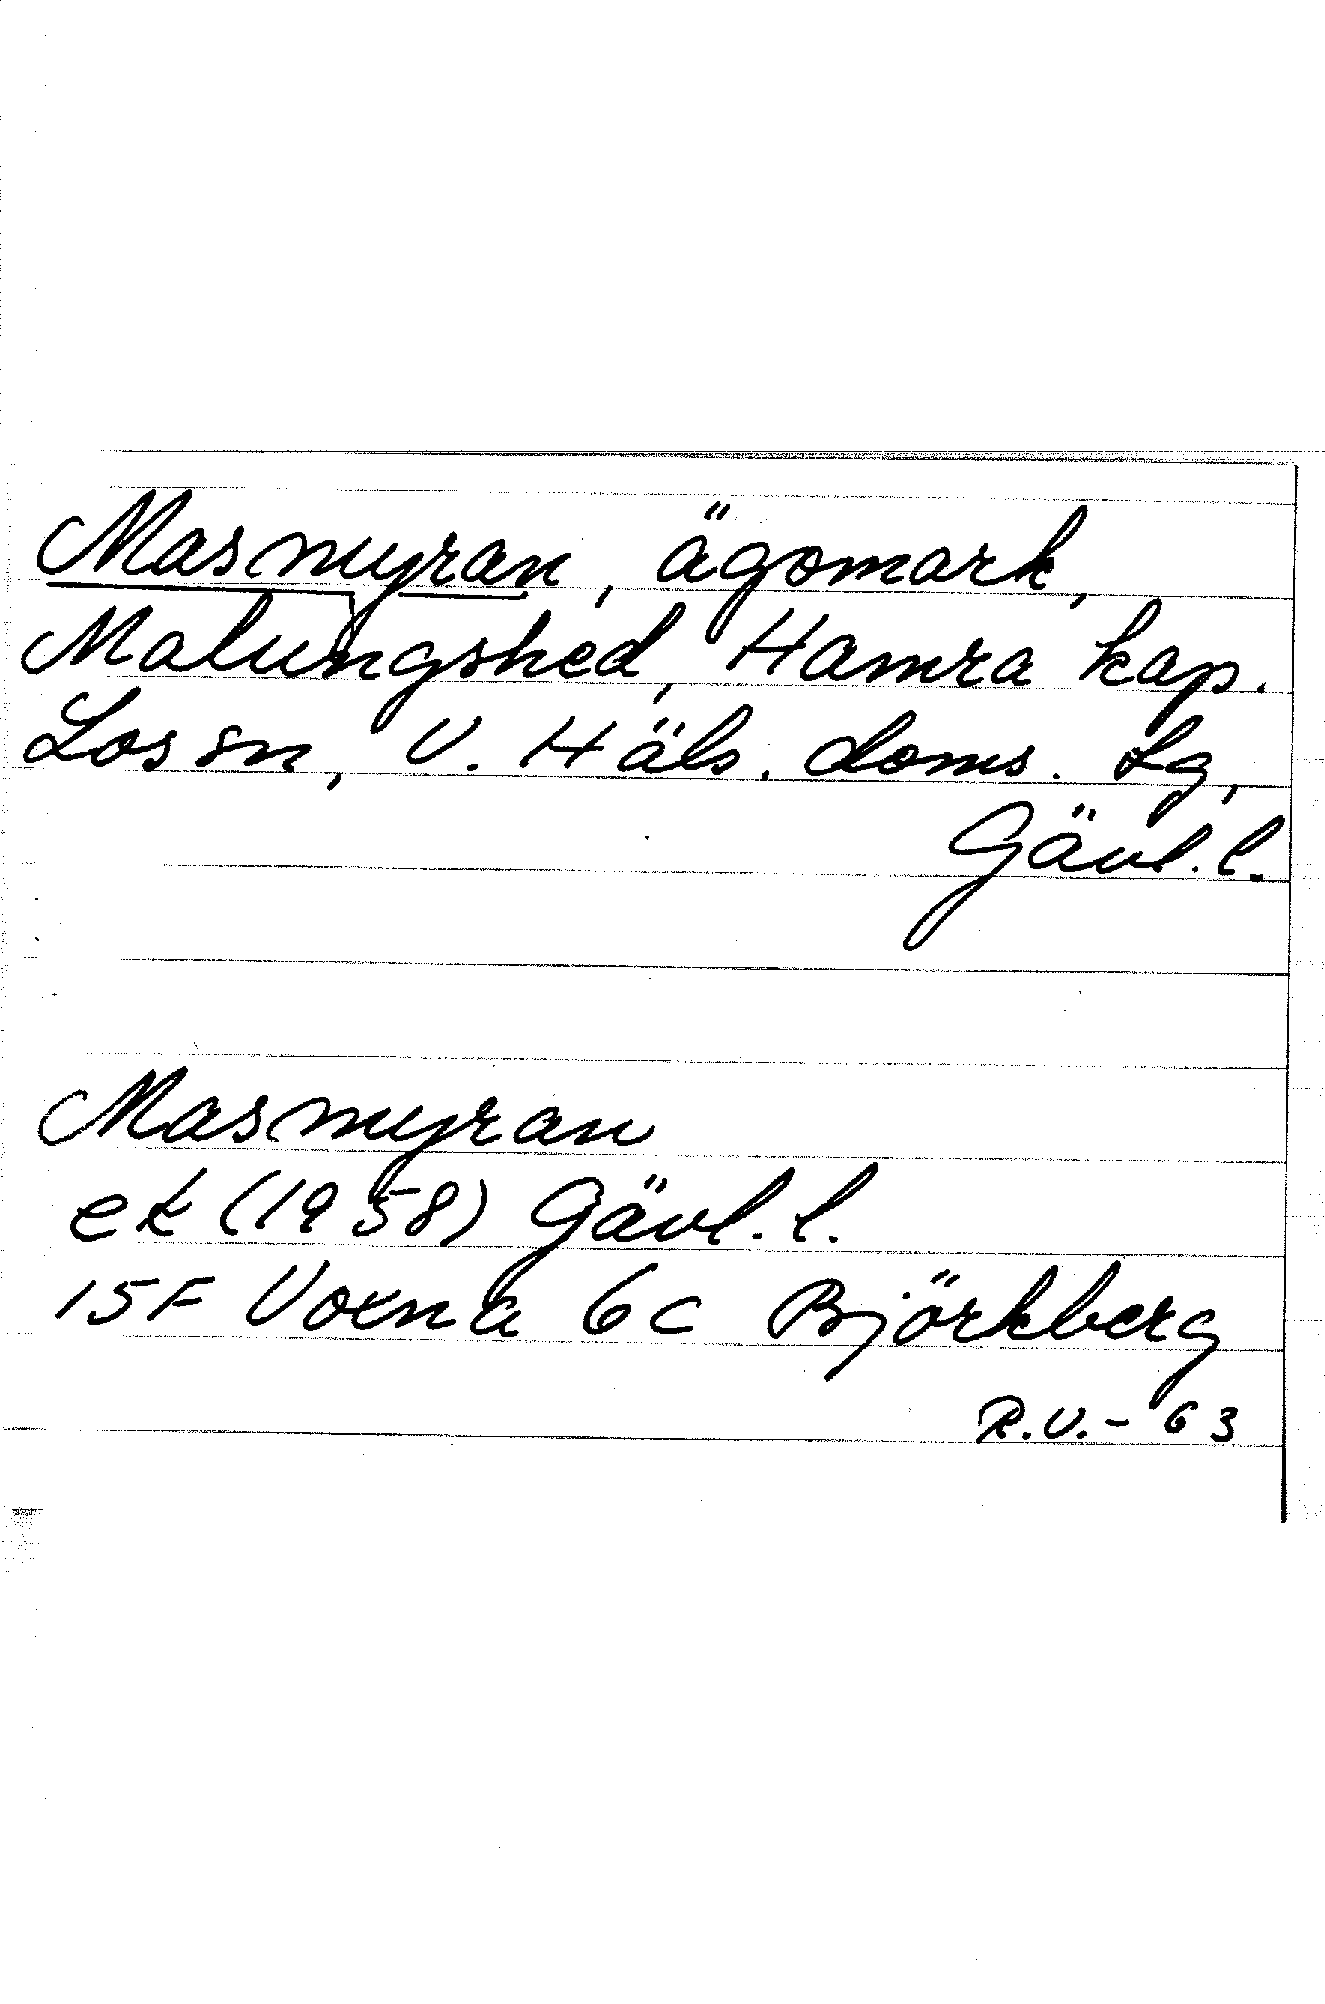 Masmyran, ägomark,
Malungshed, Hamra kap.
Los sn, V. Häls. doms. Lg,
Gävl. l.
Masmyran
ek (1958) Gävl. l.
15F Voxna 6c Björkberg
R.V. - 63